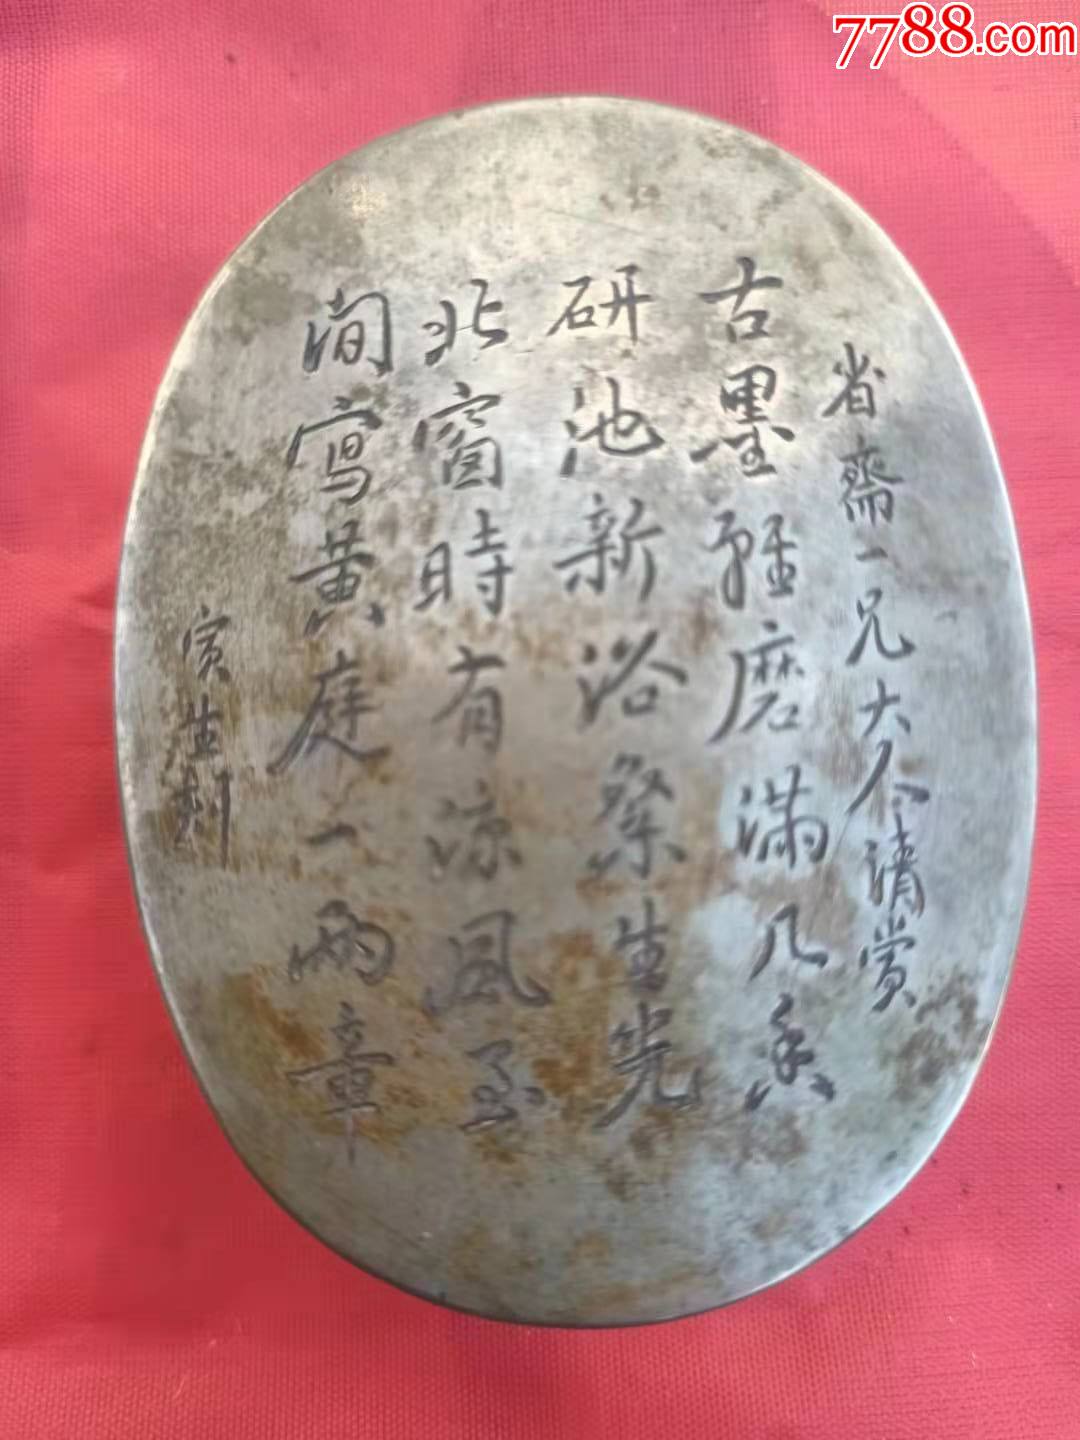 7788.com
省齋一兄大人清賞
古墨輕磨滿几香
研池新浴粲生光
北窗時有涼風至
閒寫黃庭一兩章
寅生刻